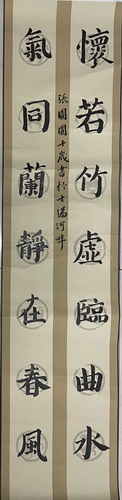 懷若竹虛臨曲水
氣同蘭靜在春風
張圓圓十歲書於士滿河畔